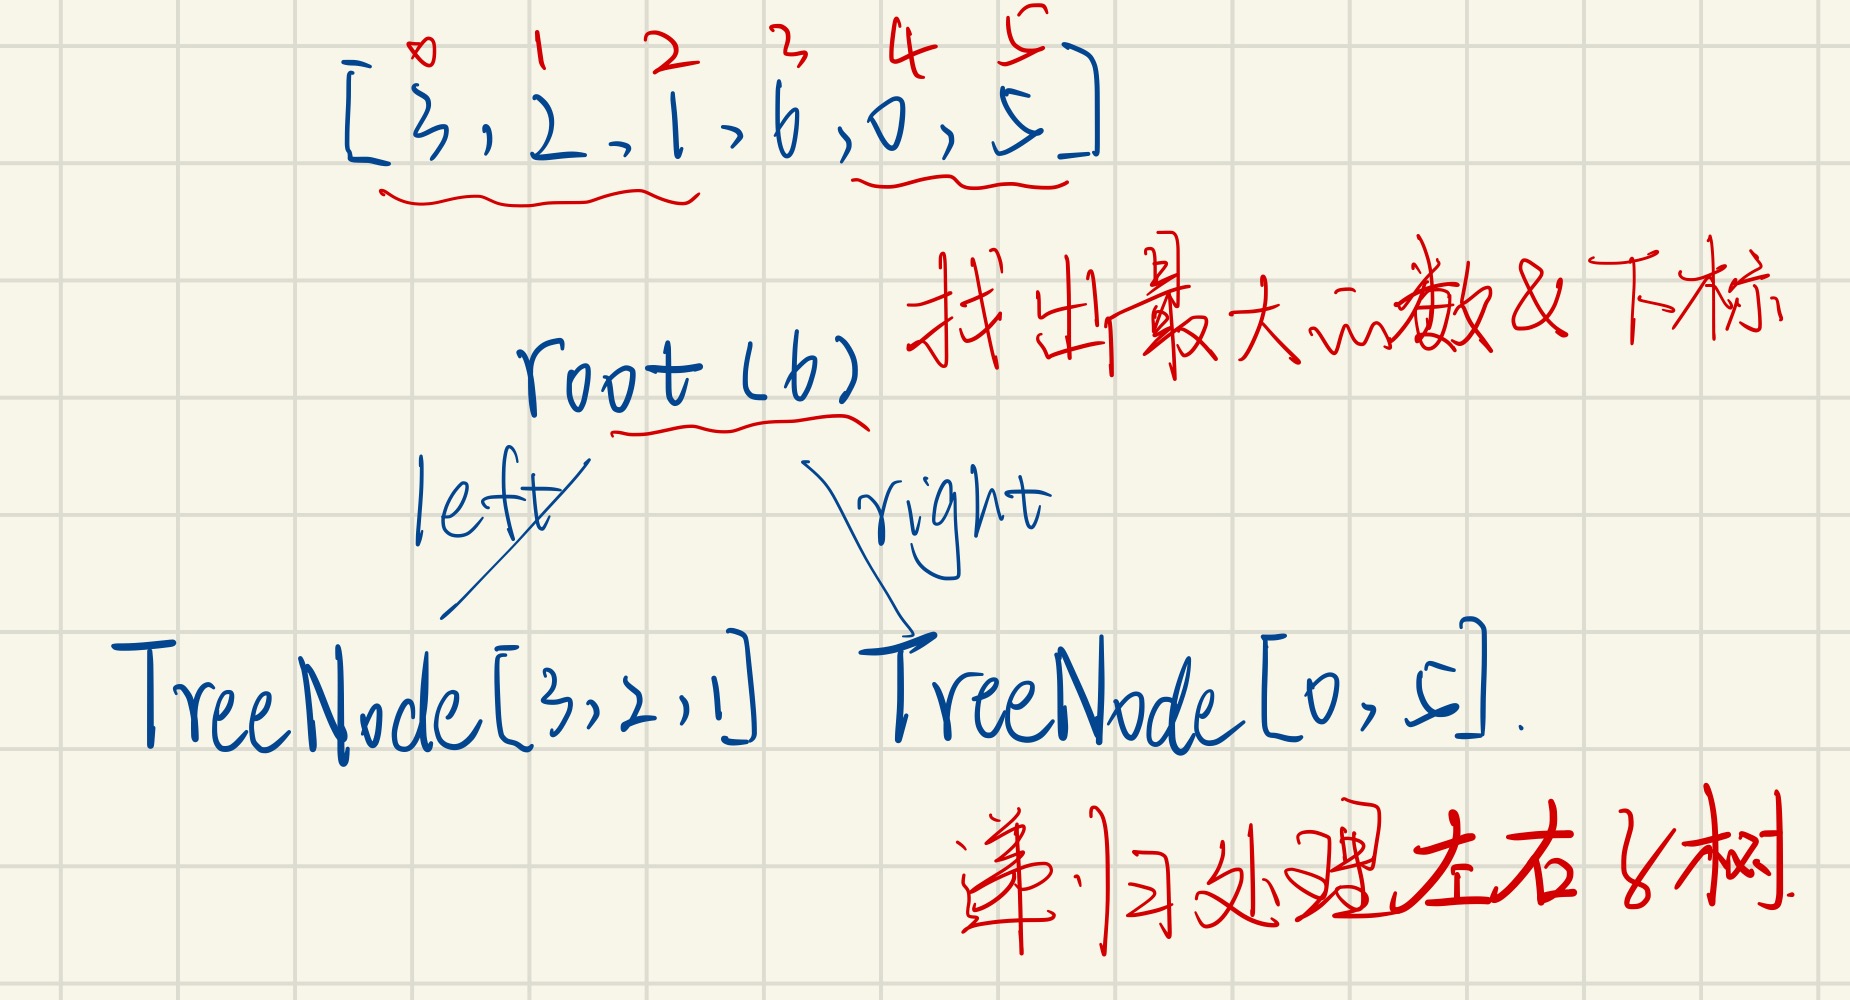 0 1 2 3 4 5
[3, 2, 1, 6, 0, 5]
找出最大元数&下标
root(6)
left right
TreeNode[3,2,1] TreeNode[0,5].
递归处理左右子树.